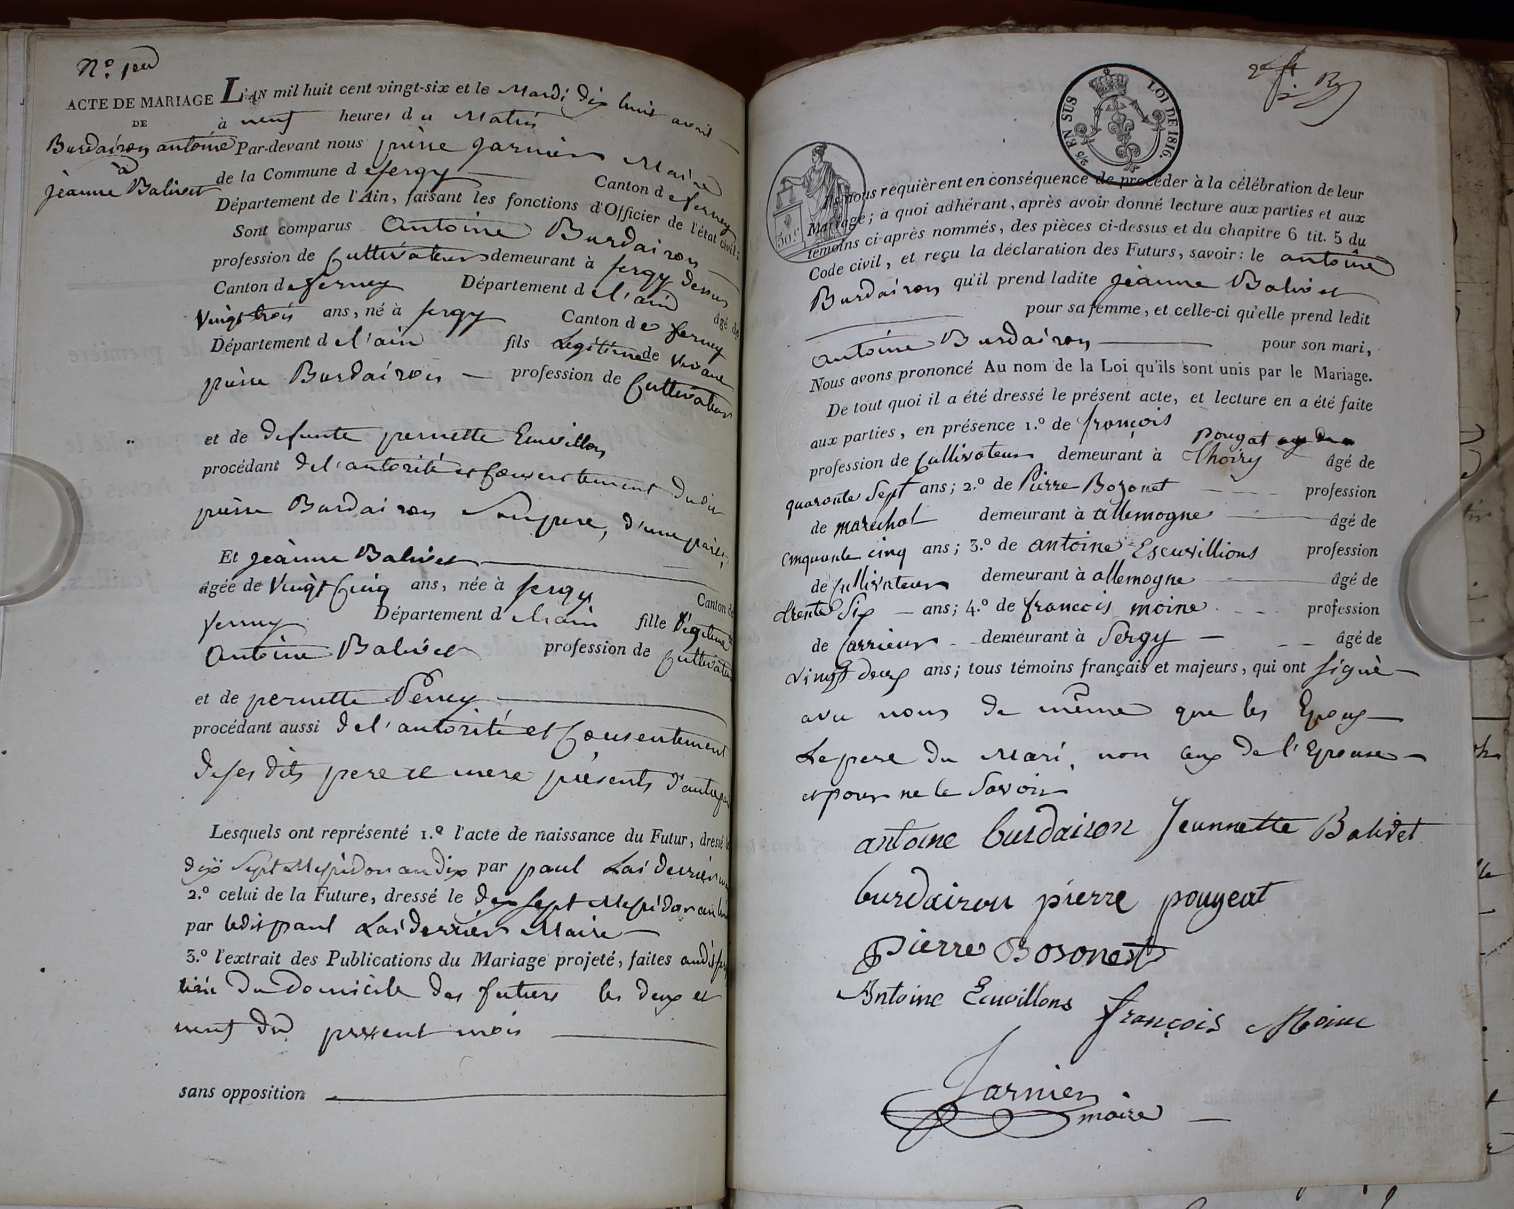 N.º 1er
ACTE DE MARIAGE
DE
Burdairon antoine
à
jeanne Balivet
L'AN mil huit cent vingt-six et le Mardi dix huit avril
à neuf heures du Matin
Par-devant nous pierre Jarnier Maire
de la Commune de Sergy Canton de ferney
Département de l'Ain, faisant les fonctions d'Officier de l'état civil;
Sont comparus Antoine Burdairon
profession de Cultivateur demeurant à Sergy dessus
Canton de ferney Département de l'ain âgé de
Vingt trois ans, né à Sergy Canton de ferney
Département de l'ain fils Légitime de vivant
pierre Burdairon profession de Cultivateur
et de defunte pernette Ecuvillon
procédant de l'autorité et Consentement dudit
pierre Burdairon Son pere, d'une part,
Et Jeanne Balivet
âgée de Vingt Cinq ans, née à Sergy Canton de
ferney Département de l'ain fille légitime d
Antoine Balivet profession de Cultivateur
et de pernette Perrey
procédant aussi de l'autorité et Consentement
de ses dits pere et mere présents d'autre part
Lesquels ont représenté 1.º l'acte de naissance du Futur, dressé le
dix Sept Messidor an dix par paul Laiderrier
2.º celui de la Future, dressé le dix Sept Messidor an
par ledit paul Laiderrier Maire
3.º l'extrait des Publications du Mariage projeté, faites audit
lieu du Domicile des futurs les deux et
neuf du present mois
sans opposition
95 EN SUS LOI DE 1816.
50 c
Ils nous requièrent en conséquence de procéder à la célébration de leur
Mariage; à quoi adhérant, après avoir donné lecture aux parties et aux
témoins ci-après nommés, des pièces ci-dessus et du chapitre 6 tit. 5 du
Code civil, et reçu la déclaration des Futurs, savoir: le antoine
Burdairon qu'il prend ladite jeanne Balivet
pour sa femme, et celle-ci qu'elle prend ledit
antoine Burdairon pour son mari,
Nous avons prononcé Au nom de la Loi qu'ils sont unis par le Mariage.
De tout quoi il a été dressé le présent acte, et lecture en a été faite
aux parties, en présence 1.º de françois Pougat
profession de Cultivateur demeurant à Thoiry âgé de
quarante Sept ans; 2.º de Pierre Bozonet profession
de marechal demeurant à allemogne âgé de
cinquante cinq ans; 3.º de antoine Escuvillions profession
de Cultivateur demeurant à allemogne âgé de
trente Six ans; 4.º de francois moine profession
de Carrieur demeurant à Sergy âgé de
vingt deux ans; tous témoins français et majeurs, qui ont signé
avec nous de même que les Epoux
Le pere du Mari, non ceux de l'Epouse
et pour ne le Savoir
antoine burdairon Jeannette Balivet
burdairon pierre pougeat
pierre Bosonet
Antoine Ecuvillons françois Moine
Jarnier
maire